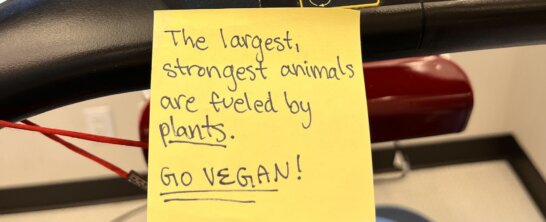 The largest,
strongest animals
are fueled by
plants.
GO VEGAN!